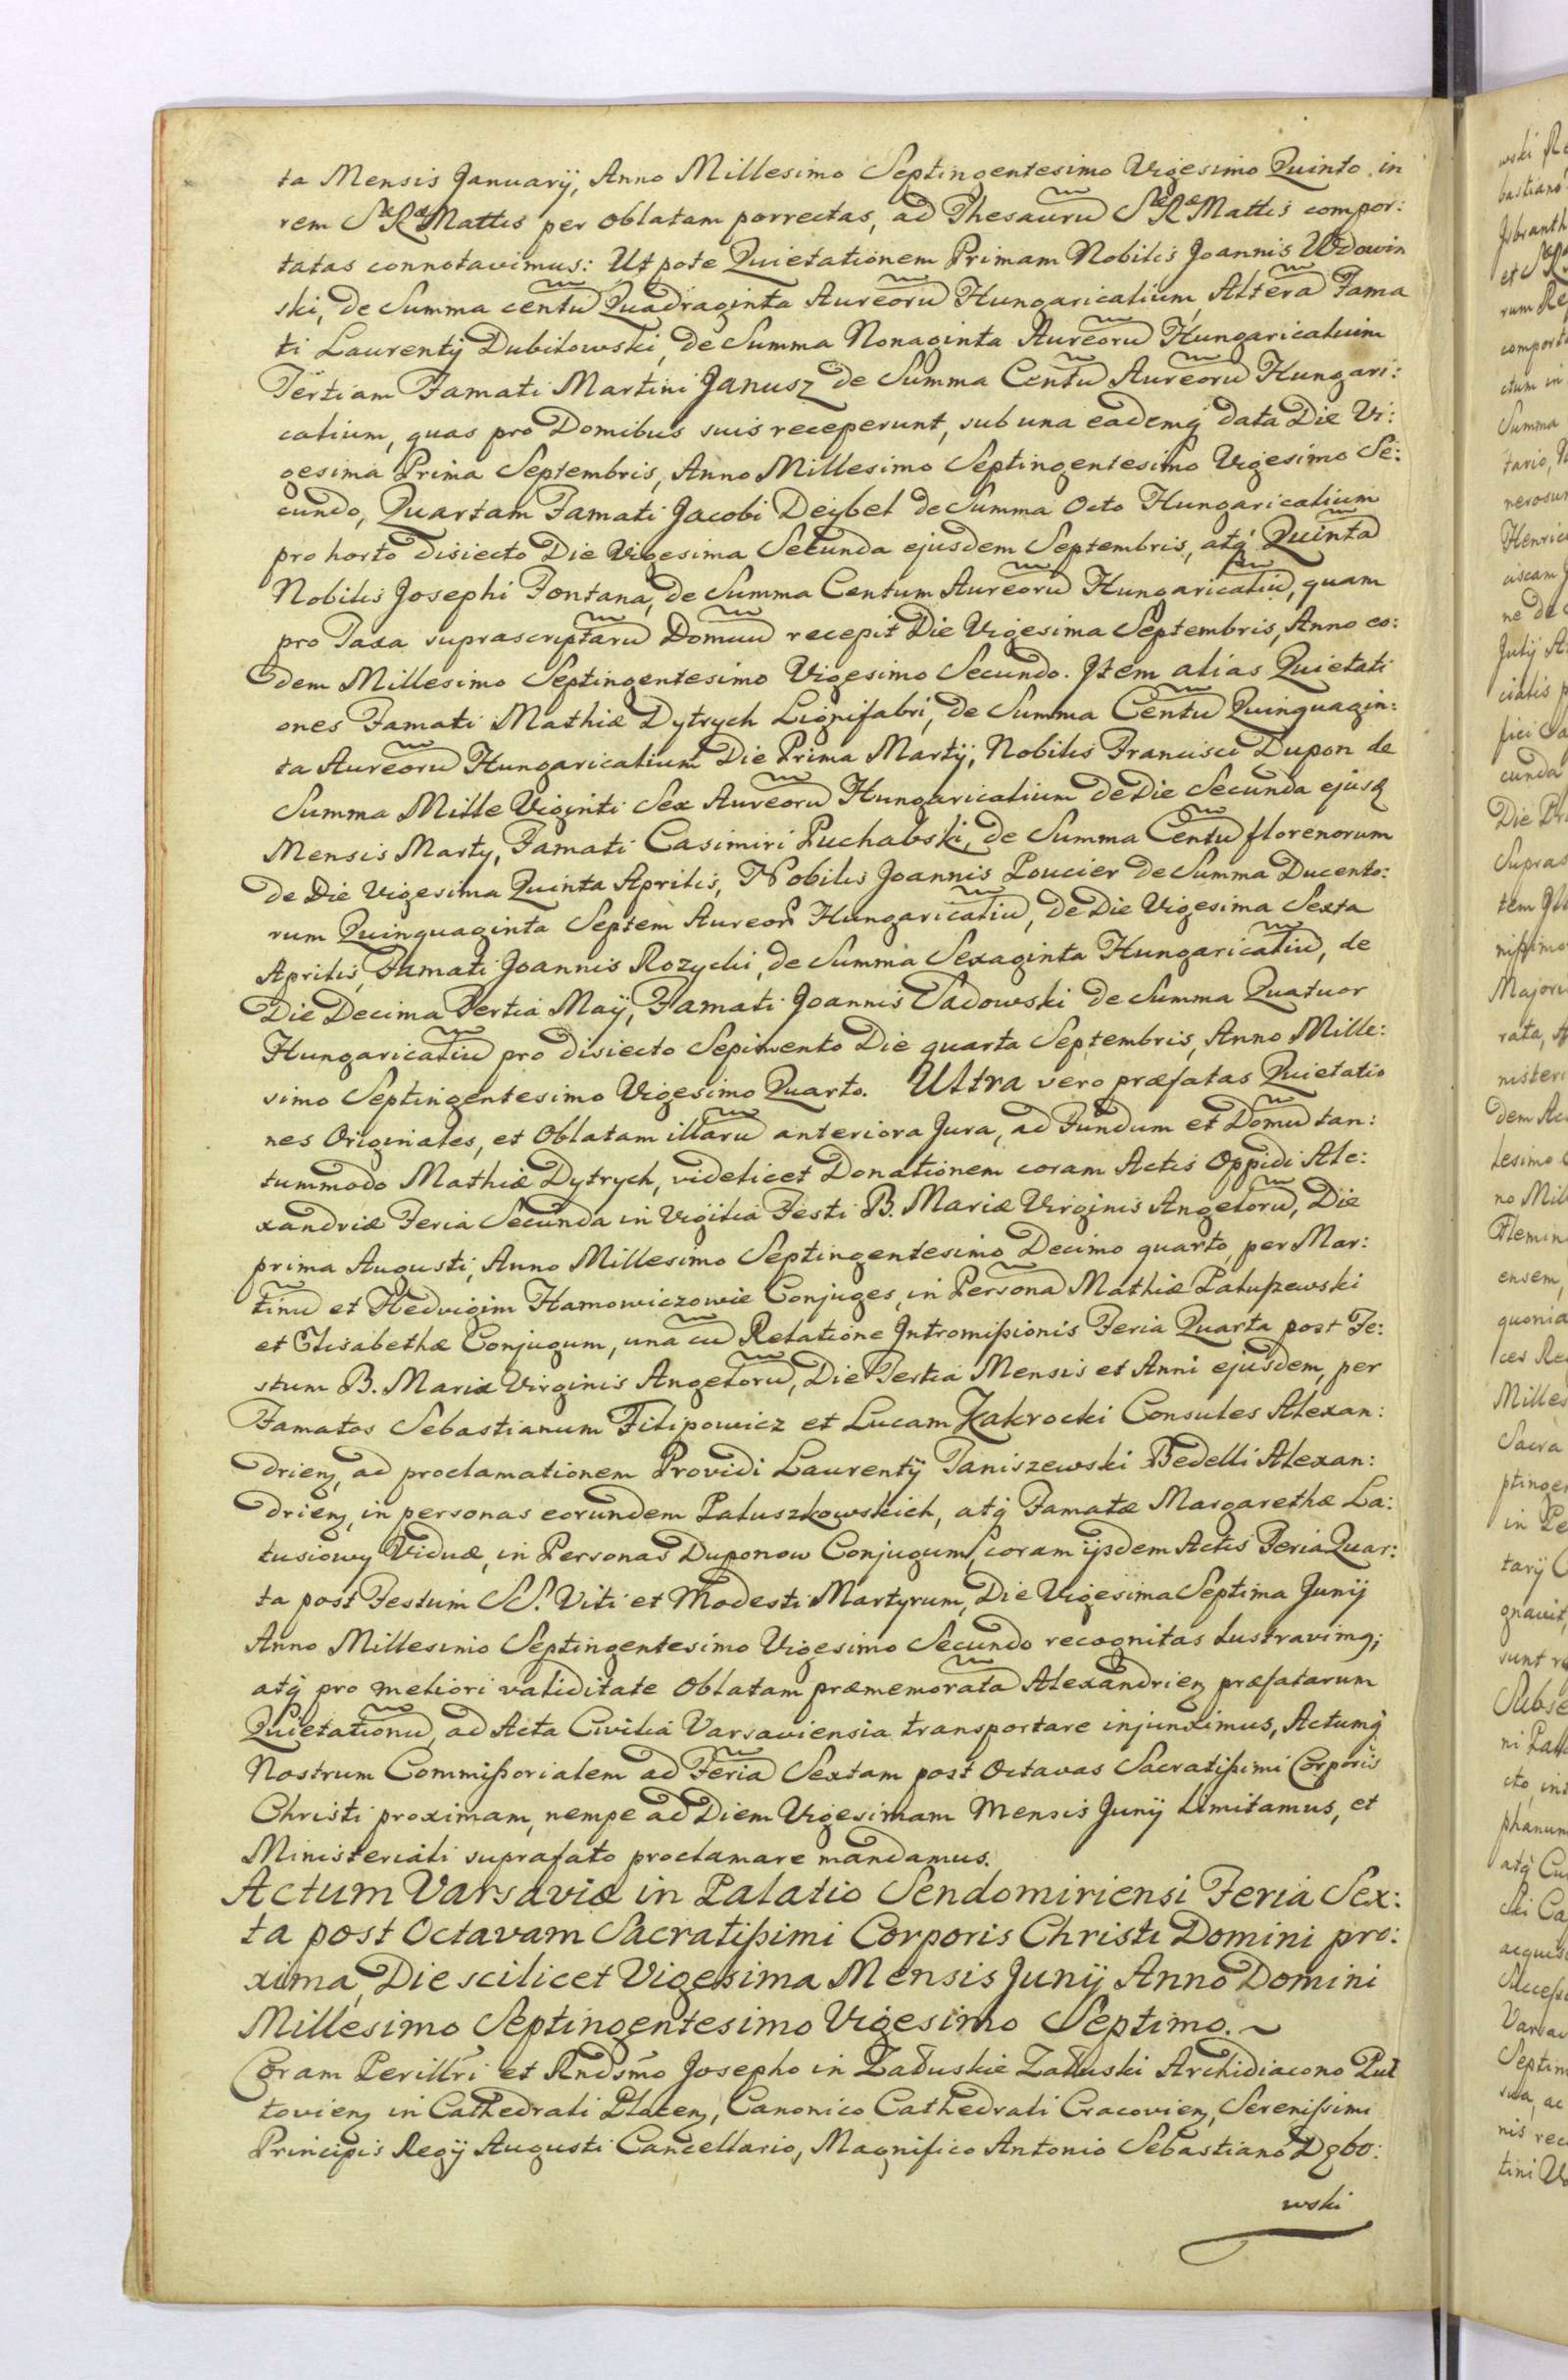 ta Mensis Januarÿ, Anno Millesimo Septingentesimo Vigesimo Quinto in
rem Sæ Ræ Mattis per oblatam porrectas, ad Thesaurũ Sæ Ræ Mattis compor:
tatas connotavimus: Utpote Quietationem Primam Nobilis Joannis Wdowin
ski, de Summa centũ Quadraginta Aureorũ Hungaricalium, Alterã Fama
ti Laurentÿ Dubilowski, de Summa Nonaginta Aureorũ Hungaricalium
Tertiam Famati Martini Janusz de Summa Centũ Aureorũ Hungari:
calium, quas pro Domibus suis receperunt, sub una eademq́ data Die Vi:
gesima Prima Septembris, Anno Millesimo Septingentesimo Vigesimo Se:
cundo, Quartam Famati Jacobi Deybel de Summa Octo Hungaricalium
pro horto disiecto Die Vigesima Secunda ejusdem Septembris, atq́ Quintã
Nobilis Josephi Fontana, de Summa Centum Aureorũ Hungaricaliũ, quam
pro Taxa suprascriptarũ Domuũ recepit Die Vigesima Septembris, Anno eo:
dem Millesimo Septingentesimo Vigesimo Secundo. Item alias Quietati
ones Famati Mathiæ Dytrych Lignifabri, de Summa Centũ Quinquagin:
ta Aureorũ Hungaricalium Die Prima Martÿ, Nobilis Francisci Dupon de
Summa Mille Viginti Sex Aureorũ Hungaricalium de Die Secunda ejusq
Mensis Marty, Famati Casimiri Puchalski, de Summa Centũ florenorum
de Die Vigesima Quinta Aprilis, Nobilis Joannis Poucier de Summa Ducento:
rum Quinquaginta Septem Aureor Hungaricaliũ, de Die Vigesima Sexta
Aprilis, Famati Joannis Rozycki, de Summa Sexaginta Hungaricaliũ, de
Die Decima Tertia Maÿ, Famati Joannis Sadowski de Summa Quatuor
Hungaricaliũ pro disiecto Sepimento Die quarta Septembris, Anno Mille:
simo Septingentesimo Vigesimo Quarto. Ultra vero præfatas Quietatio
nes Originales, et Oblatam illarũ anteriora Jura, ad Fundum et Domũ tan:
tummodo Mathiæ Dytrych, videlicet Donationem coram Actis Oppidi Ale:
xandriæ Feria Secunda in Vigilia Festi B. Mariæ Virginis Angelorũ, Die
prima Augusti, Anno Millesimo Septingentesimo Decimo quarto, per Mar:
tinũ et Hedvigim Hamowiczowie Conjuges, in Personã Mathiæ Paluszewski
et Elisabethæ Conjugum, una cũ Relatione Intromissionis Feria Quarta post Fe:
stum B. Mariæ Virginis Angelorũ, Die Tertia Mensis et Anni ejusdem, per
Famatos Sebastianum Filipowicz et Lucam Zakrocki Consules Alexan:
drien, ad proclamationem Providi Laurentÿ Taniszewski Bedelli Alexan:
drien, in personas eorundem Paluszkowskich, atq́ Famatæ Margarethæ La:
tusiowy Viduæ, in Personas Duponow Conjugum, coram ijsdem Actis Feria Quar:
ta post Festum SS. Viti et Modesti Martyrum, Die Vigesima Septima Junÿ
Anno Millesimo Septingentesimo Vigesimo Secundo recognitas lustravimq;
atq́ pro meliori validitate Oblatam præmemoratã Alexandrien præfatarum
Quietationũ, ad Acta Civilia Varsaviensia transportare injunximus, Actumq́
Nostrum Commissorialem ad Feriã Sextam post Octavas Sacratissimi Corporis
Christi proximam, nempe ad Diem Vigesimam Mensis Junÿ limitamus, et
Ministeriali suprafato proclamare mandamus.
Actum Varsaviæ in Palatio Sendomiriensi Feria Sex:
ta post Octavam Sacratissimi Corporis Christi Domini pro:
xima, Die scilicet Vigesima Mensis Junÿ Anno Domini
Millesimo Septingentesimo Vigesimo Septimo. ~
Coram Perillri et Rndsmo Josepho in Załuskie Załuski Archidiacono Pul
tovien in Cathedrali Plocen, Canonico Cathedrali Cracovien, Serenissimi
Principis Regÿ Augusti Cancellario, Magnifico Antonio Sebastiano Dębo:
wski